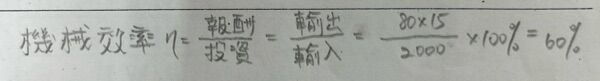 機械效率 η = 報酬/投資 = 輸出/輸入 = 80×15/2000 ×100% = 60%